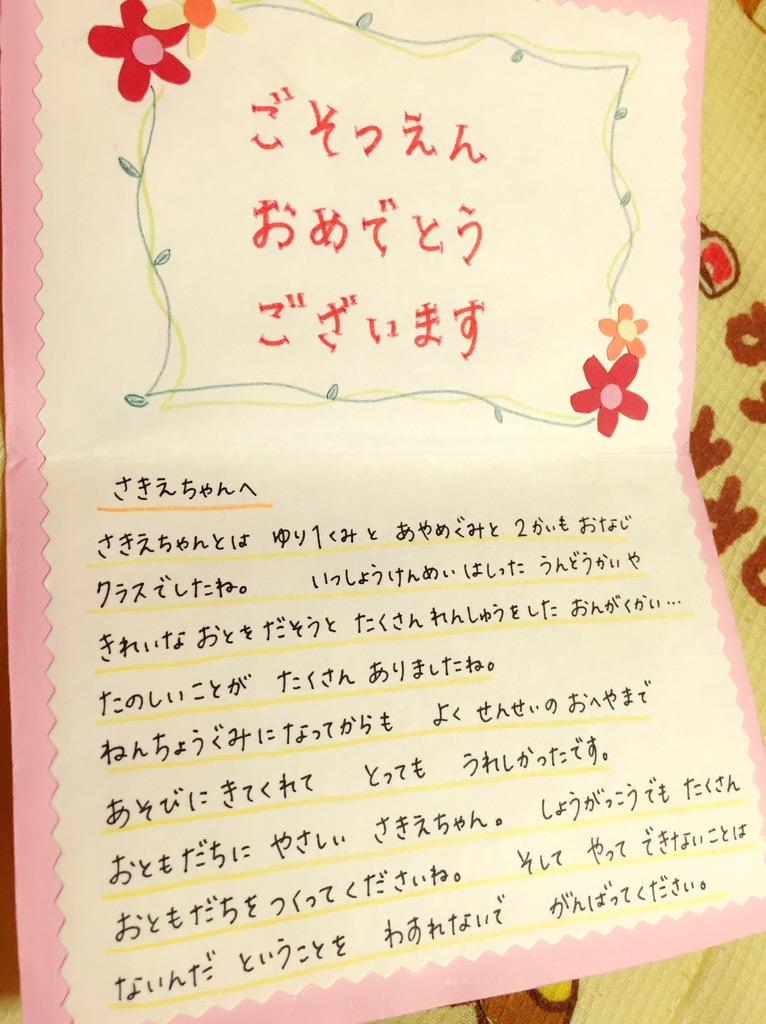 ごそつえん
おめでとう
ございます
さきえちゃんへ
さきえちゃんとは ゆり1くみと あやめぐみと 2かいも おなじ
クラスでしたね。 いっしょうけんめい はしった うんどうかいや
きれいな おとを だそうと たくさん れんしゅうをした おんがくかい…
たのしいことが たくさん ありましたね。
ねんちょうぐみに なってからも よく せんせいの おへやまで
あそびに きてくれて とっても うれしかったです。
おともだちに やさしい さきえちゃん。 しょうがっこうでも たくさん
おともだちを つくってくださいね。 そして やって できないことは
ないんだ ということを わすれないで がんばってください。